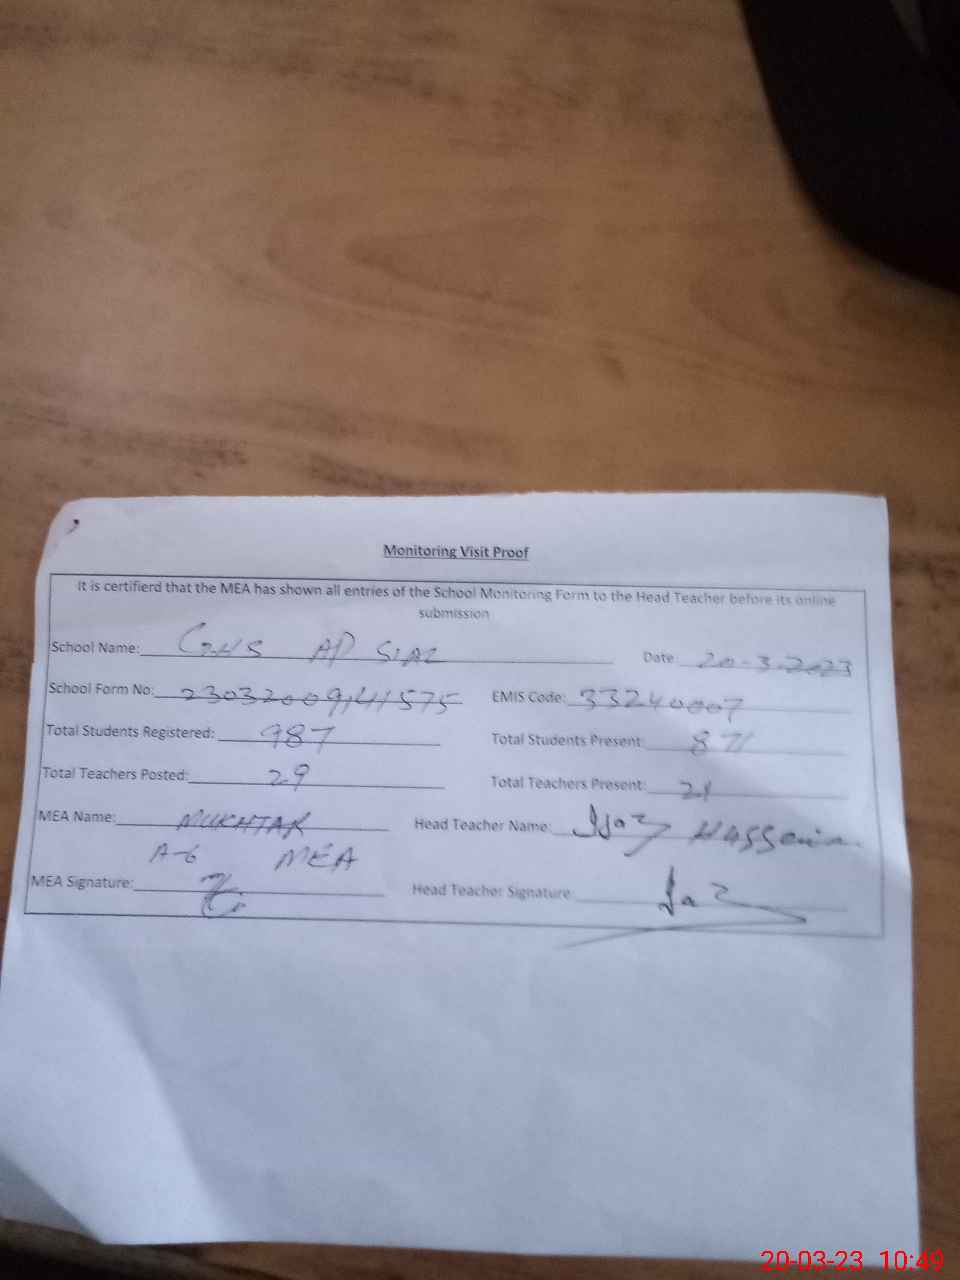 Monitoring Visit Proof
It is certifierd that the MEA has shown all entries of the School Monitoring Form to the Head Teacher before its online
submission
School Name: GHS AP SIAL Date: 20-3-2023
School Form No: 23032009141575 EMIS Code: 33240007
Total Students Registered: 987 Total Students Present: 871
Total Teachers Posted: 29 Total Teachers Present: 21
MEA Name: MUKHTAR Head Teacher Name: Ijaz Hussain
A-6 MEA
MEA Signature: Head Teacher Signature Ijaz
20-03-23 10:49